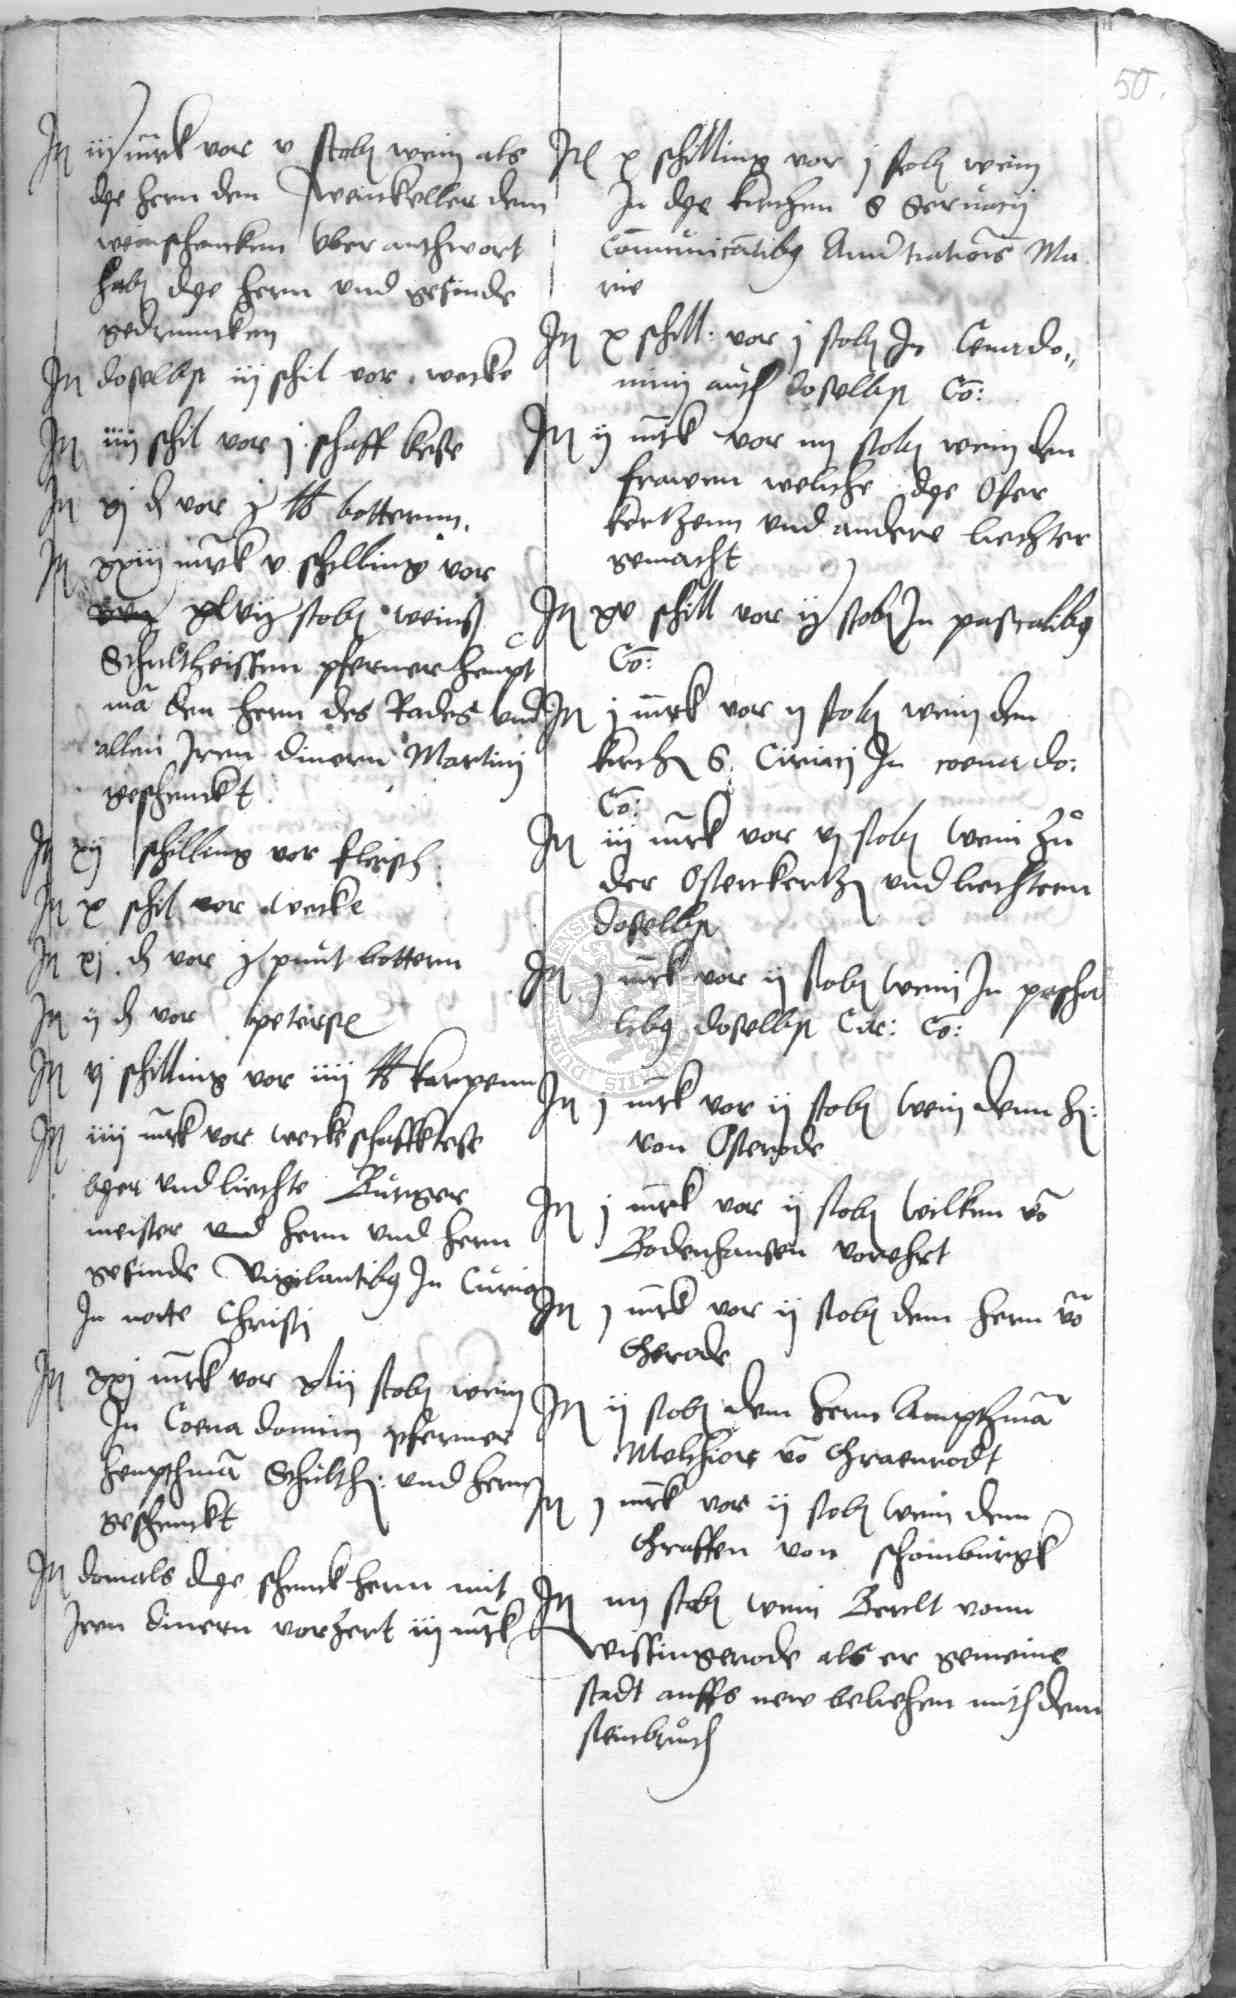 50.
It iij mrk vor v stobn wein als
dye hern den weinkeller dem
weinschencken uber anthwort
habn dye hern und gesinde
gedruncken
It doselbst iij schil vor wecke
It iiij schil vor j schaff kese
It xj d vor j lb botternn.
It xxiij mrk v schilling vor
xlvij stobn weins
Schultheissen pferner heupt
man den hern des Rades und
allen Iren dinern Martini
geschenckt
It xij schilling vor fleisch
It x schil vor wecke
It xj d vor j punt bottern
It ij d vor petersil
It vj schilling vor iiij lb karpenn
It iiij mrk vor wecke schaffkese
byer und liechte Burger
meister und hern und hern
gesinde vigilantibus In Curia
In nocte Christi
It xxj mrk vor xlij stobn wein
In Coena domini pferner
heupthman Schulth: und hern
geschenckt
It domals dye schenckhern mit
Iren dinern vorzert iij mrk
It x schilling vor j stobn wein
In dye kirchen S Servacij
Communicantibus Annuntiationis Ma
rie
It x schill. vor j stobn In Cena do=
mini auch doselbst Co:
It ij mrk vor iiij stobn wein den
frawen welche dye Oster
kertzenn und andere liechter
gemacht
It xv schill vor ij stobn In pascalibus
Co:
It j mrk vor ij stobn wein den
kirchn S. Ciriaci In coena do:
Co:
It iij mrk vor vj stobn wein zu
der Osterkertzn und liechtern
doselbst
It j mrk vor ij stobn wein In pascha
libus doselbst Cir: Co:
It j mrk vor ij stobn wein denn h:
von Osterode
It j mrk vor ij stobn wilken vo
Bodenhausen vorehrt
It j mrk vor ij stobn dem hern vo
Gerode
It ij stobn dem hern Ampthman
Melchior vo Graenrodt
It j mrk vor ij stobn wein dem
Graffen von schomburgk
It iiij stobn wein Bertolt vonn
wissingerode als er gemeine
stadt auffs new beliehen mith dem
steinbruch